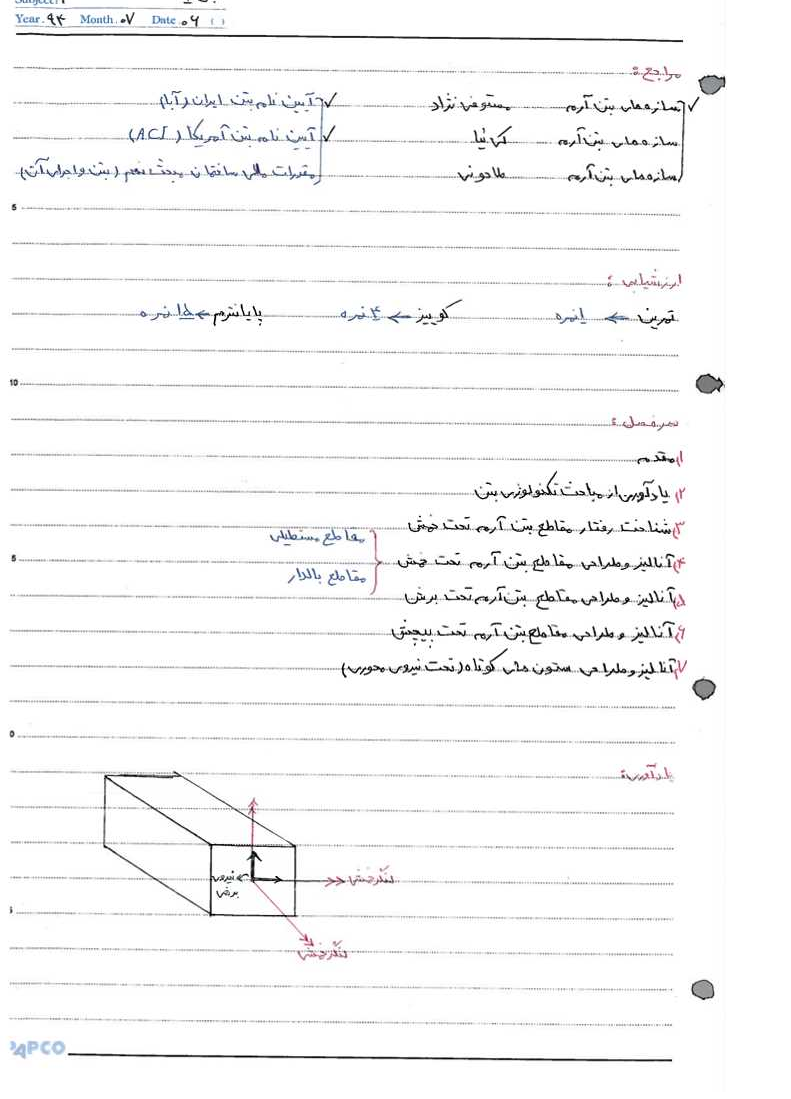 Year. ۹۴ Month. ۰۷ Date. ۰۶ ( )
مراجع :
سازه‌های بتن آرمه مستوفی نژاد ✓ آیین نامه بتن ایران (آبا)
سازه‌های بتن آرمه کی نیا ✓ آیین نامه بتن آمریکا (ACI)
سازه‌های بتن آرمه طاحونی مقررات ملی ساختمان مبحث نهم (بتن و اجرای آن)
5
ارزشیابی :
تمرین ← ۱ نمره کوییز ← ۴ نمره پایانترم ← ۱۵ نمره
10
سرفصل :
۱) مقدمه
۲) یادآوری از مباحث تکنولوژی بتن
۳) شناخت رفتار مقاطع بتن آرمه تحت خمش
مقاطع مستطیلی
۴) آنالیز و طراحی مقاطع بتن آرمه تحت خمش
5
مقاطع بالدار
۵) آنالیز و طراحی مقاطع بتن آرمه تحت برش
۶) آنالیز و طراحی مقاطع بتن آرمه تحت پیچش
۷) آنالیز و طراحی ستون های کوتاه (تحت نیروی محوری)
0
یادآوری:
نیروی
برشی
لنگر خمشی
لنگر خمشی
PAPCO